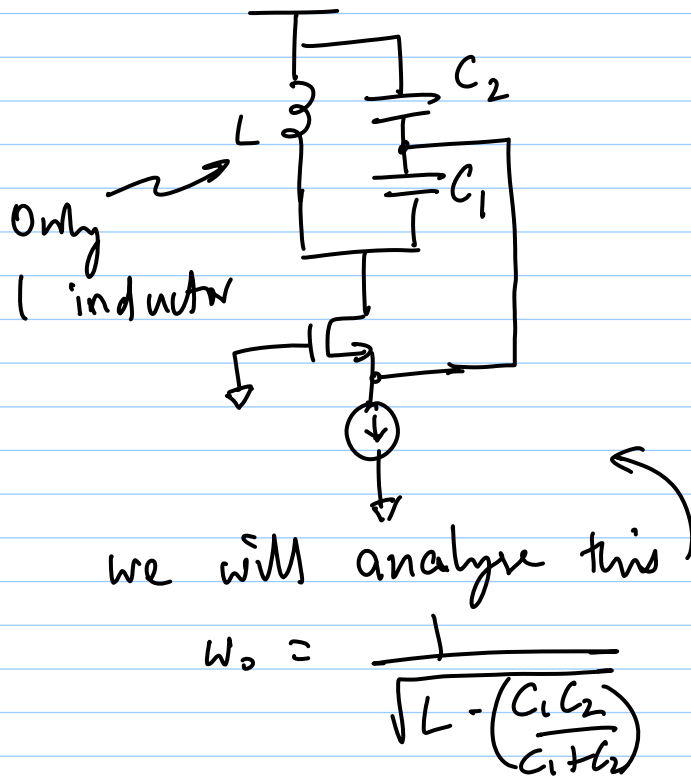 C₂
L
C₁
Only
1 inductor
we will analyse this
ω₀ = 1 / √(L · (C₁C₂ / C₁+C₂))